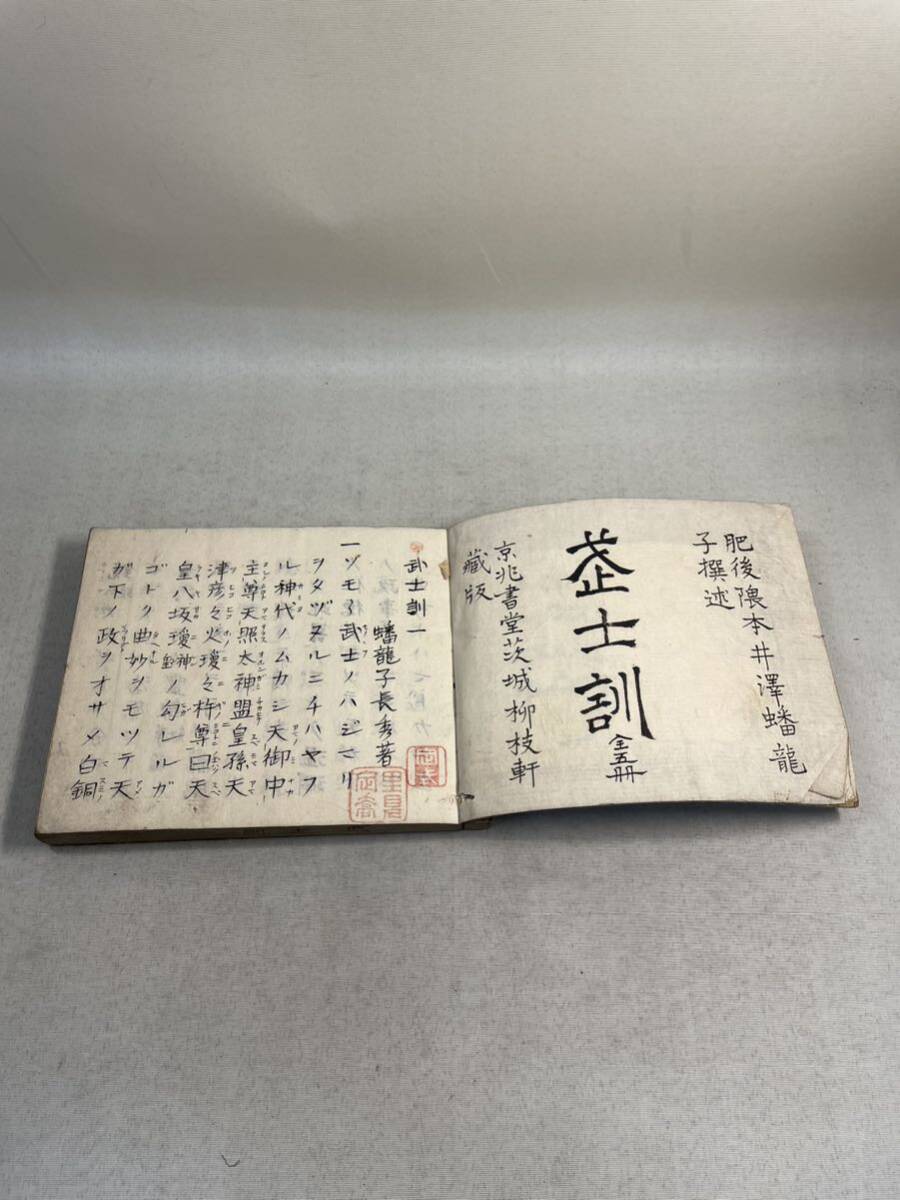 肥後隈本井澤蟠龍
子撰述
武士訓 全五冊
京兆書堂茨城柳枝軒
藏版
武士訓一
蟠龍子長秀著
一ヅモノ武士ノハジマリ
ヲタヅヌルニチハヤフ
ル神代ノムカシ天御中
主尊天照太神盟皇孫天
津彦々火瓊々杵尊曰天
皇八坂瓊神ノ勾レルガ
ゴトク曲妙ヲモツテ天
ガ下ノ政ヲオサメ白銅